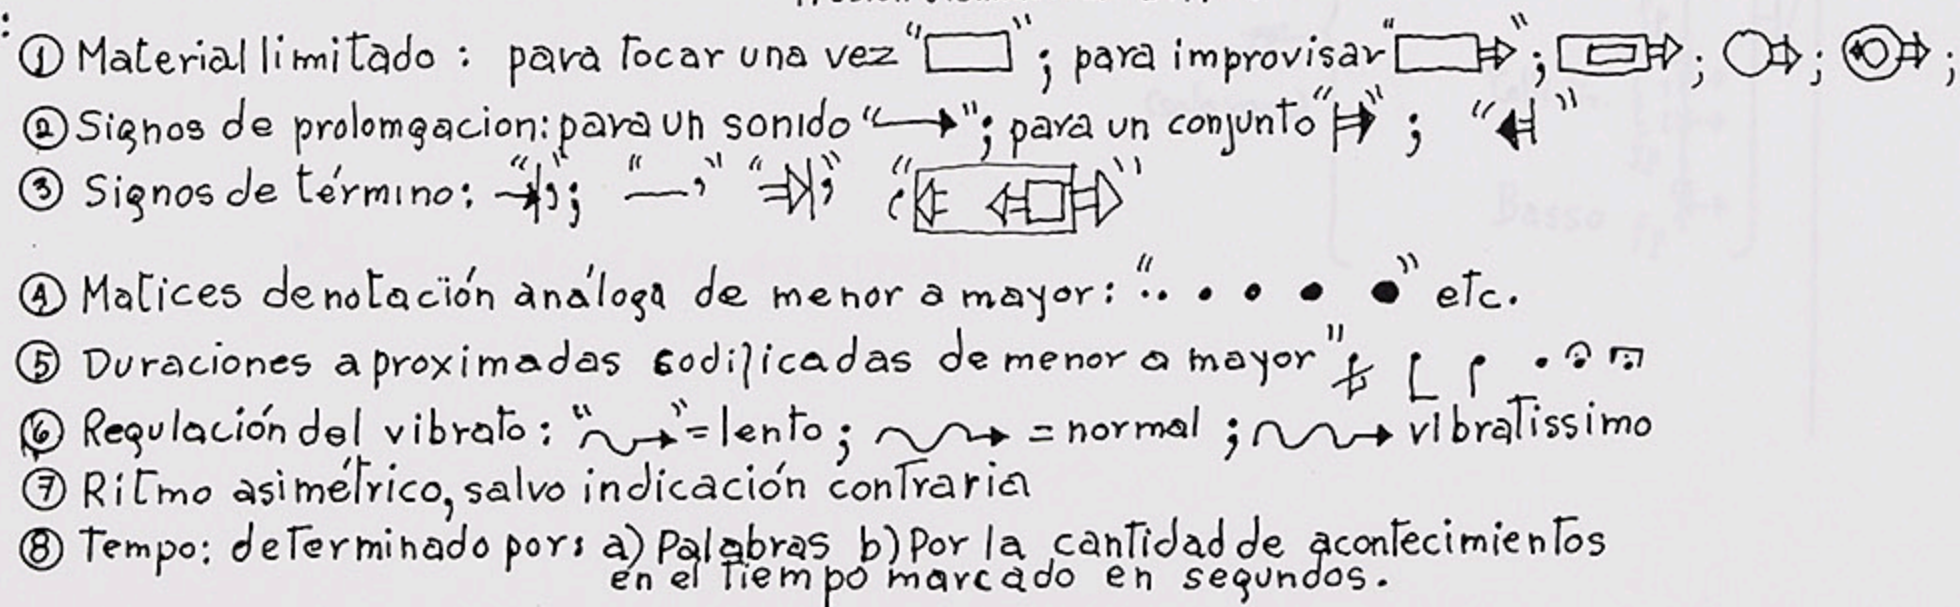 ① Material limitado: para tocar una vez " "; para improvisar " "; ; ; ;
② Signos de prolomgacion: para un sonido "→"; para un conjunto " "; " "
③ Signos de término: " "; "—," " "; " "
④ Matices de notación análoga de menor a mayor: ". . • • • ●" etc.
⑤ Duraciones aproximadas codificadas de menor a mayor "
⑥ Regulación del vibrato: " " = lento; = normal; vibratissimo
⑦ Ritmo asimétrico, salvo indicación contraria
⑧ Tempo: determinado por: a) Palabras b) Por la cantidad de acontecimientos
en el tiempo marcado en segundos.